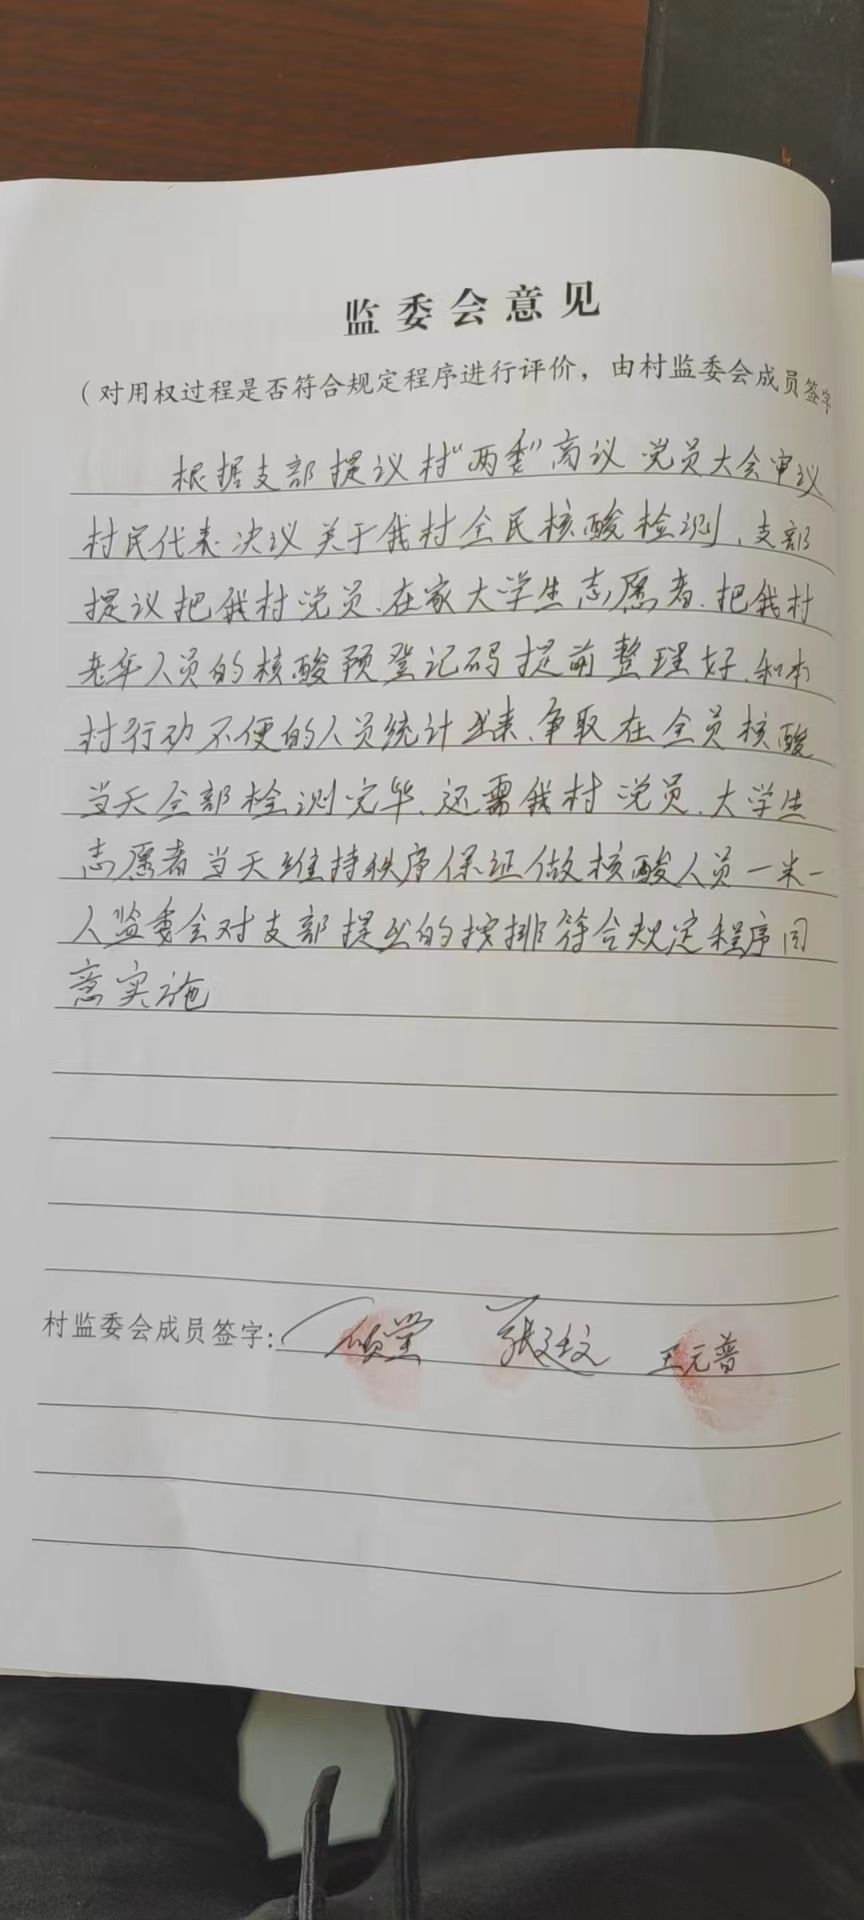 监委会意见
（对用权过程是否符合规定程序进行评价，由村监委会成员签字
根据支部提议村“两委”商议 党员大会审议
村民代表决议关于我村全民核酸检测、支部
提议把我村党员、在家大学生志愿者、把我村
老年人员的核酸预登记码提前整理好、和本
村行动不便的人员统计出来、争取在全员核酸
当天全部检测完毕、还需我村党员、大学生
志愿者当天维持秩序保证做核酸人员一米一
人监委会对支部提出的按排符合规定程序同
意实施
村监委会成员签字: 张廷文 王元普